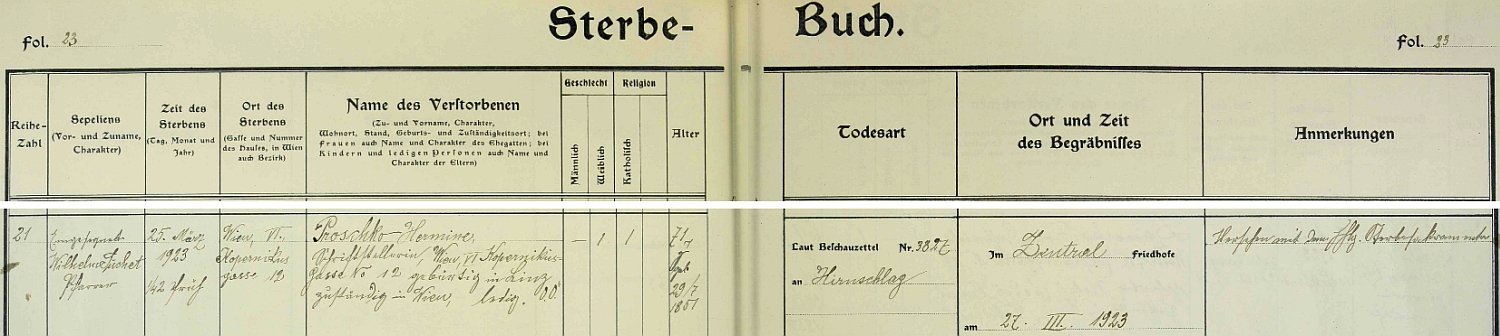 Sterbe- Buch.
Fol. 23
Fol. 23
Reihe-
Zahl
Sepeliens
(Vor- und Zuname,
Charakter)
Zeit des
Sterbens
(Tag, Monat und
Jahr)
Ort des
Sterbens
(Gasse und Nummer
des Hauses, in Wien
auch Bezirk)
Name des Verstorbenen
(Zu- und Vorname, Charakter,
Wohnort, Stand, Geburts- und Zuständigkeitsort; bei
Frauen auch Name und Charakter des Ehegatten; bei
Kindern und ledigen Personen auch Name und
Charakter der Eltern)
Geschlecht
Männlich
Weiblich
Religion
Katholisch
Alter
Todesart
Ort und Zeit
des Begräbnisses
Anmerkungen
21
Eingesegnet
Wilhelm Fuchet
Pfarrer
25. März
1923
1/2 früh
Wien, VI.
Kopernikus
gasse 12
Proschko Hermine,
Schriftstellerin, Wien, VI Kopernikus-
gasse No 12 gebürtig in Linz
zuständig in Wien, ledig.
–
1
1
71
29/7
1851
Laut Beschauzettel Nr. 3827
an Hirnschlag
Im Zentral Friedhofe
am 27. III. 1923
Versehen mit den hlg. Sterbesakramenten